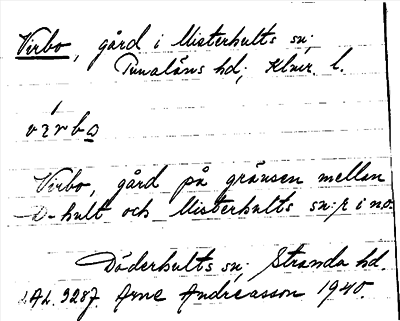 Virbo, gård i Misterhults sn;
Tunaläns hd; Klmr. l.
virbo
Virbo, gård på gränsen mellan
D-hult och Misterhults sn:r i no.
Döderhults sn; Stranda hd.
AL. 9287. Arne Andreasson 1940.